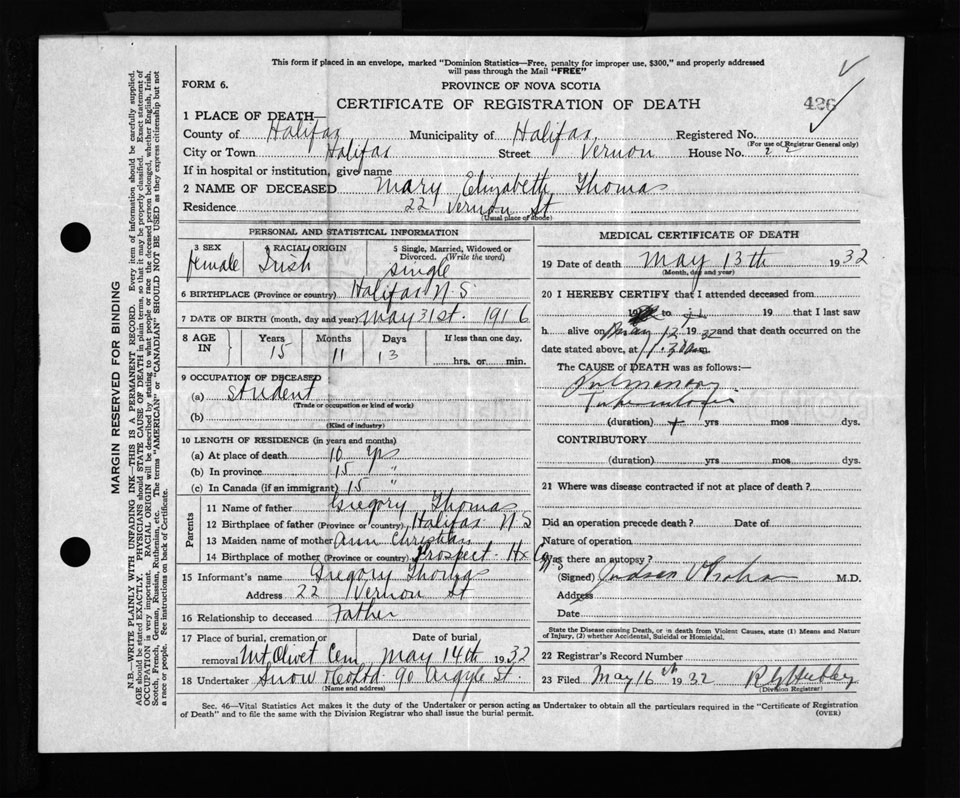 This form if placed in an envelope, marked "Dominion Statistics—Free, penalty for improper use, $300," and properly addressed
will pass through the Mail "FREE"
FORM 6.
PROVINCE OF NOVA SCOTIA
CERTIFICATE OF REGISTRATION OF DEATH
426
1 PLACE OF DEATH—
County of Halifax Municipality of Halifax Registered No.
(For use of Registrar General only)
City or Town Halifax Street Vernon House No. 22
If in hospital or institution, give name
2 NAME OF DECEASED Mary Elizabeth Thomas
Residence 22 Vernon St
(Usual place of abode)
PERSONAL AND STATISTICAL INFORMATION
3 SEX female
4 RACIAL ORIGIN Irish
5 Single, Married, Widowed or
Divorced. (Write the word)
single
6 BIRTHPLACE (Province or country) Halifax N.S.
7 DATE OF BIRTH (month, day and year) May 31st. 1916
8 AGE IN Years Months Days If less than one day,
15 11 13 hrs. or min.
9 OCCUPATION OF DECEASED
(a) student
(Trade or occupation or kind of work)
(b)
(Kind of industry)
10 LENGTH OF RESIDENCE (in years and months)
(a) At place of death 10 yrs
(b) In province 15 "
(c) In Canada (if an immigrant) 15 "
Parents
11 Name of father Gregory Thomas
12 Birthplace of father (Province or country) Halifax N S
13 Maiden name of mother Ann Christian
14 Birthplace of mother (Province or country) Prospect Hx Co N.S.
15 Informant's name Gregory Thomas
Address 22 Vernon St
16 Relationship to deceased Father
17 Place of burial, cremation or Date of burial
removal Mt. Olivet Cem May 14th 1932
18 Undertaker Snow & Co Ltd 90 Argyle St.
(Name and address)
MEDICAL CERTIFICATE OF DEATH
19 Date of death May 13th 1932
(Month, day and year)
20 I HEREBY CERTIFY that I attended deceased from
19 to 19 that I last saw
h alive on May 12 1932 and that death occurred on the
date stated above, at m.
The CAUSE of DEATH was as follows:—
Pulmonary
Tuberculosis
(duration) yrs mos dys.
CONTRIBUTORY
(duration) yrs mos dys.
21 Where was disease contracted if not at place of death?
Did an operation precede death? Date of
Nature of operation
Was there an autopsy?
(Signed) Judson V Graham M.D.
Address
Date
State the Disease causing Death, or in death from Violent Causes, state (1) Means and Nature
of Injury, (2) whether Accidental, Suicidal or Homicidal.
22 Registrar's Record Number
23 Filed May 16th 1932
(Division Registrar)
Sec. 46—Vital Statistics Act makes it the duty of the Undertaker or person acting as Undertaker to obtain all the particulars required in the "Certificate of Registration
of Death" and to file the same with the Division Registrar who shall issue the burial permit.
(OVER)
MARGIN RESERVED FOR BINDING
N.B.—WRITE PLAINLY WITH UNFADING INK—THIS IS A PERMANENT RECORD. Every item of information should be carefully supplied.
AGE should be stated EXACTLY. PHYSICIANS should STATE CAUSE OF DEATH in plain terms, so that it may be properly classified. Exact statement of
OCCUPATION is very important. RACIAL ORIGIN will be described by stating to what people or race the deceased person belonged, whether English, Irish,
Scotch, French, German, Russian, Ruthenian, etc. The terms "AMERICAN" or "CANADIAN" SHOULD NOT BE USED as they express citizenship but not
a race or people. See instructions on back of Certificate.